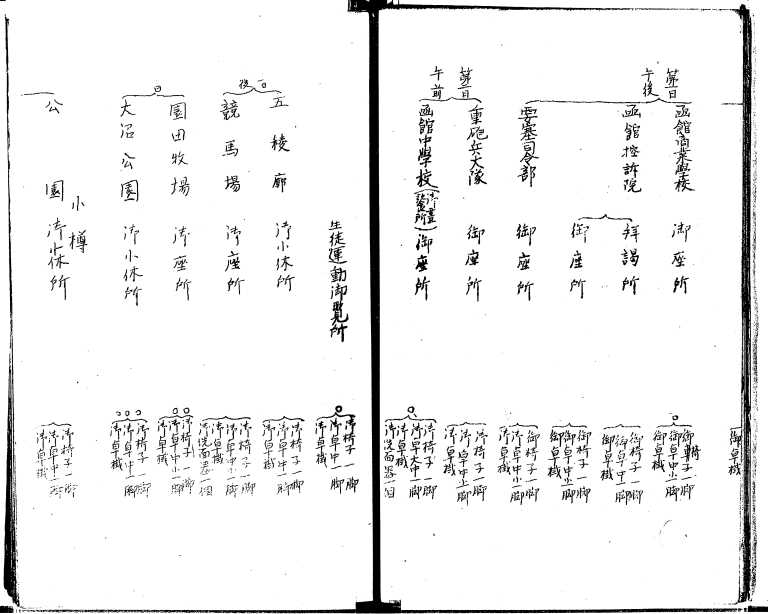 御卓機
第一日
午後
函館商業學校 御座所
御椅子一脚
御卓中小一脚
御卓機
函館控訴院 拜謁所
御椅子一脚
御卓中一脚
御卓機
御座所
御椅子一脚
御卓中小一脚
御卓機
要塞司令部 御座所
御椅子一脚
御卓中小一脚
御卓機
第二日
午前
重砲兵大隊 御座所
御椅子一脚
御卓中小一脚
御卓機
函館中學校 御座所
御椅子一脚
御卓大中一脚
御卓機
御洗面器一個
生徒運動御覽所
御椅子一脚
御卓中一脚
御卓機
同 後
五稜廓 御小休所
御椅子一脚
御卓中一脚
御卓機
競馬場 御座所
御椅子一脚
御卓中小一脚
御卓機
御洗面器一個
同
園田牧場 御座所
御椅子一脚
御卓中小一脚
御卓機
大沼公園 御小休所
御椅子一脚
御卓中一脚
御卓機
小樽
公園 御小休所
御椅子一脚
御卓中一脚
御卓機